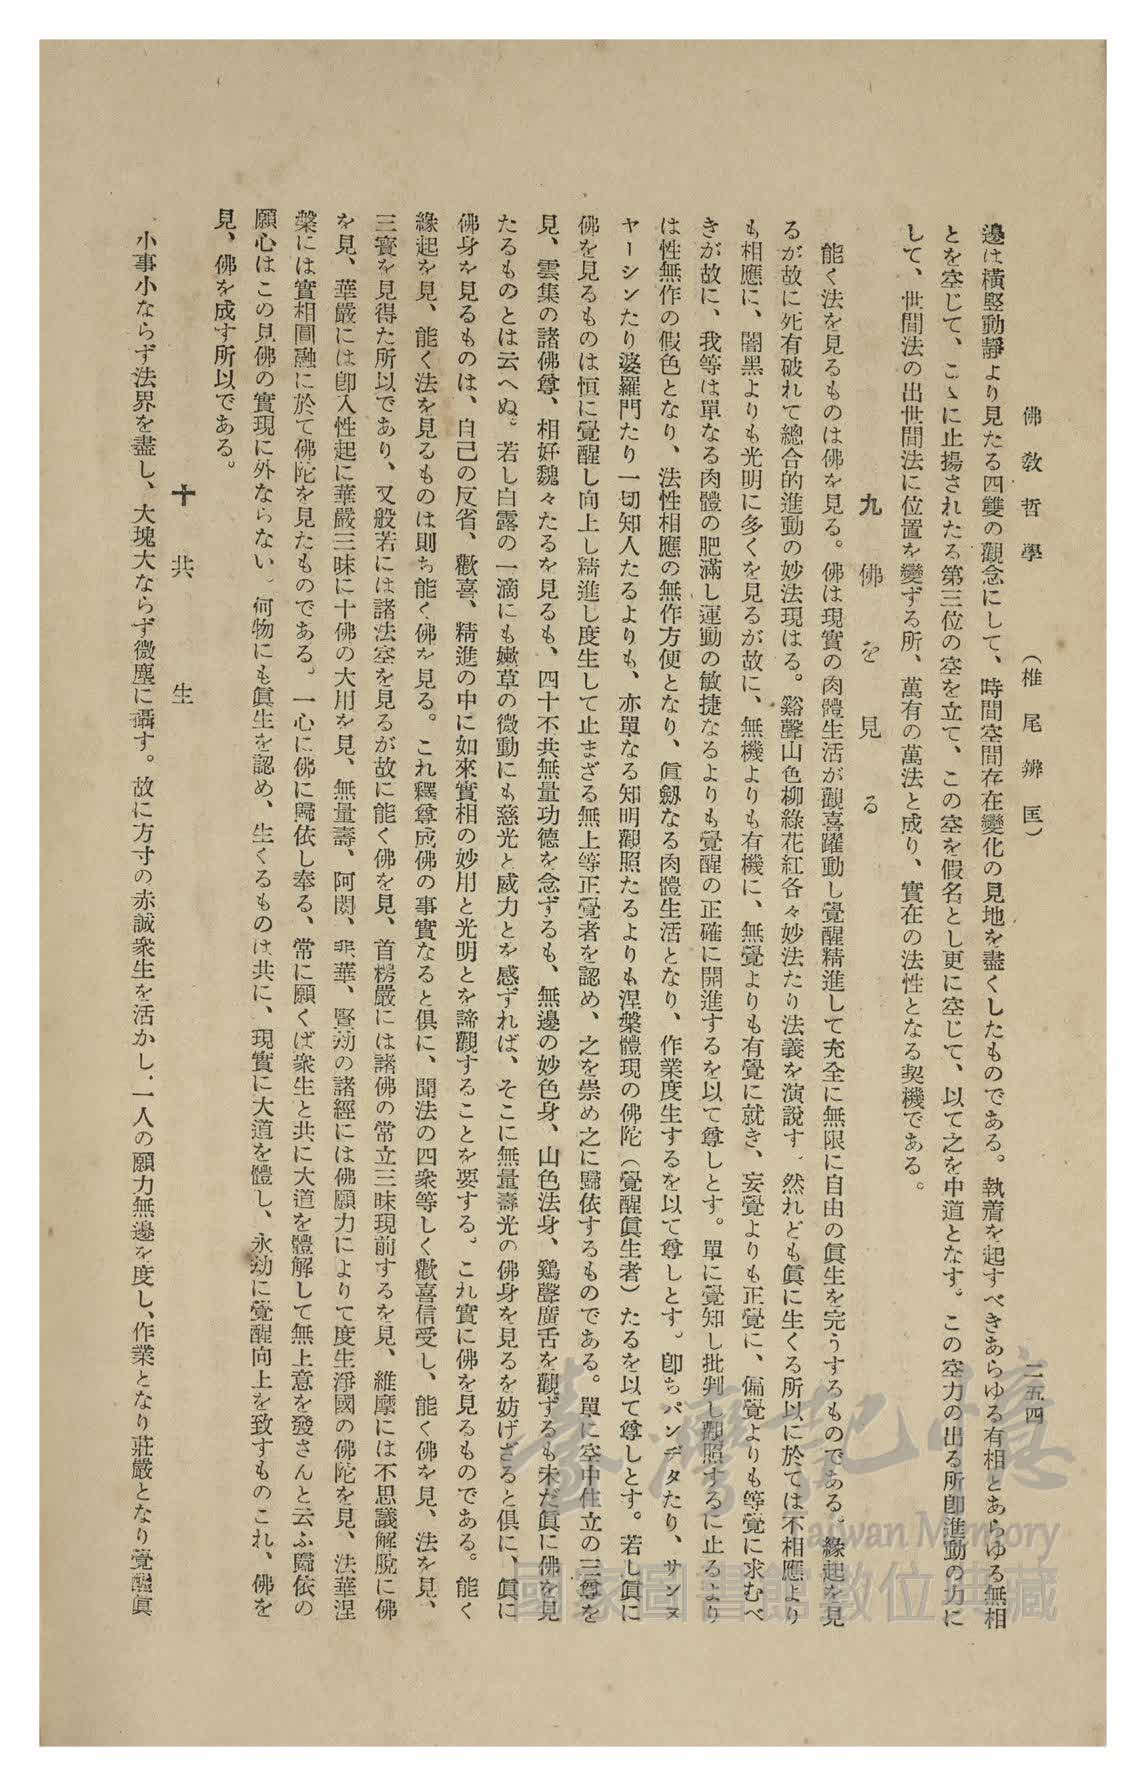 佛敎哲學 (椎尾辨匡) 二五四
邊は橫竪動靜より見たる四雙の觀念にして、時間空間存在變化の見地を盡くしたものである。執着を起すべきあらゆる有相とあらゆる無相
とを空じて、こゝに止揚されたる第三位の空を立て、この空を假名とし更に空じて、以て之を中道となす。この空力の出る所卽進動の力に
して、世間法の出世間法に位置を變ずる所、萬有の萬法と成り、實在の法性となる契機である。
九 佛を見る
能く法を見るものは佛を見る。佛は現實の肉體生活が觀喜躍動し覺醒精進して充全に無限に自由の眞生を完うするものである。緣起を見
るが故に死有破れて總合的進動の妙法現はる。谿聲山色柳綠花紅各々妙法たり法義を演說す。然れども眞に生くる所以に於ては不相應より
も相應に、闇黑よりも光明に多くを見るが故に、無機よりも有機に、無覺よりも有覺に就き、妄覺よりも正覺に、偏覺よりも等覺に求むべ
きが故に、我等は單なる肉體の肥滿し運動の敏捷なるよりも覺醒の正確に開進するを以て尊しとす。單に覺知し批判し觀照するに止るより
は性無作の假色となり、法性相應の無作方便となり、眞劔なる肉體生活となり、作業度生するを以て尊しとす。卽ちパンデタたり、サンヌ
ヤーシンたり婆羅門たり一切知人たるよりも、亦單なる知明觀照たるよりも涅槃體現の佛陀(覺醒眞生者)たるを以て尊しとす。若し眞に
佛を見るものは恒に覺醒し向上し精進し度生して止まざる無上等正覺者を認め、之を崇め之に歸依するものである。單に空中住立の三尊を
見、雲集の諸佛尊、相好魏々たるを見るも、四十不共無量功德を念ずるも、無邊の妙色身、山色法身、鷄聲廣舌を觀ずるも未だ眞に佛を見
たるものとは云へぬ。若し白露の一滴にも嫩草の微動にも慈光と威力とを感ずれば、そこに無量壽光の佛身を見るを妨げざると俱に、眞に
佛身を見るものは、自己の反省、歡喜、精進の中に如來實相の妙用と光明とを諦觀することを要する。これ實に佛を見るものである。能く
緣起を見、能く法を見るものは則ち能く佛を見る。これ釋尊成佛の事實なると俱に、聞法の四衆等しく歡喜信受し、能く佛を見、法を見、
三寶を見得た所以であり、又般若には諸法空を見るが故に能く佛を見、首楞嚴には諸佛の常立三昧現前するを見、維摩には不思議解脫に佛
を見、華嚴には卽入性起に華嚴三昧に十佛の大用を見、無量壽、阿閦、悲華、賢劫の諸經には佛願力によりて度生淨國の佛陀を見、法華涅
槃には實相圓融に於て佛陀を見たものである。一心に佛に歸依し奉る、常に願くば衆生と共に大道を體解して無上意を發さんと云ふ歸依の
願心はこの見佛の實現に外ならない。何物にも眞生を認め、生くるものは共に、現實に大道を體し、永劫に覺醒向上を致すものこれ、佛を
見、佛を成す所以である。
十 共生
小事小ならず法界を盡し、大塊大ならず微塵に攝す。故に方寸の赤誠衆生を活かし、一人の願力無邊を度し、作業となり莊嚴となり覺醒眞
臺灣記憶
Taiwan Memory
國家圖書館數位典藏